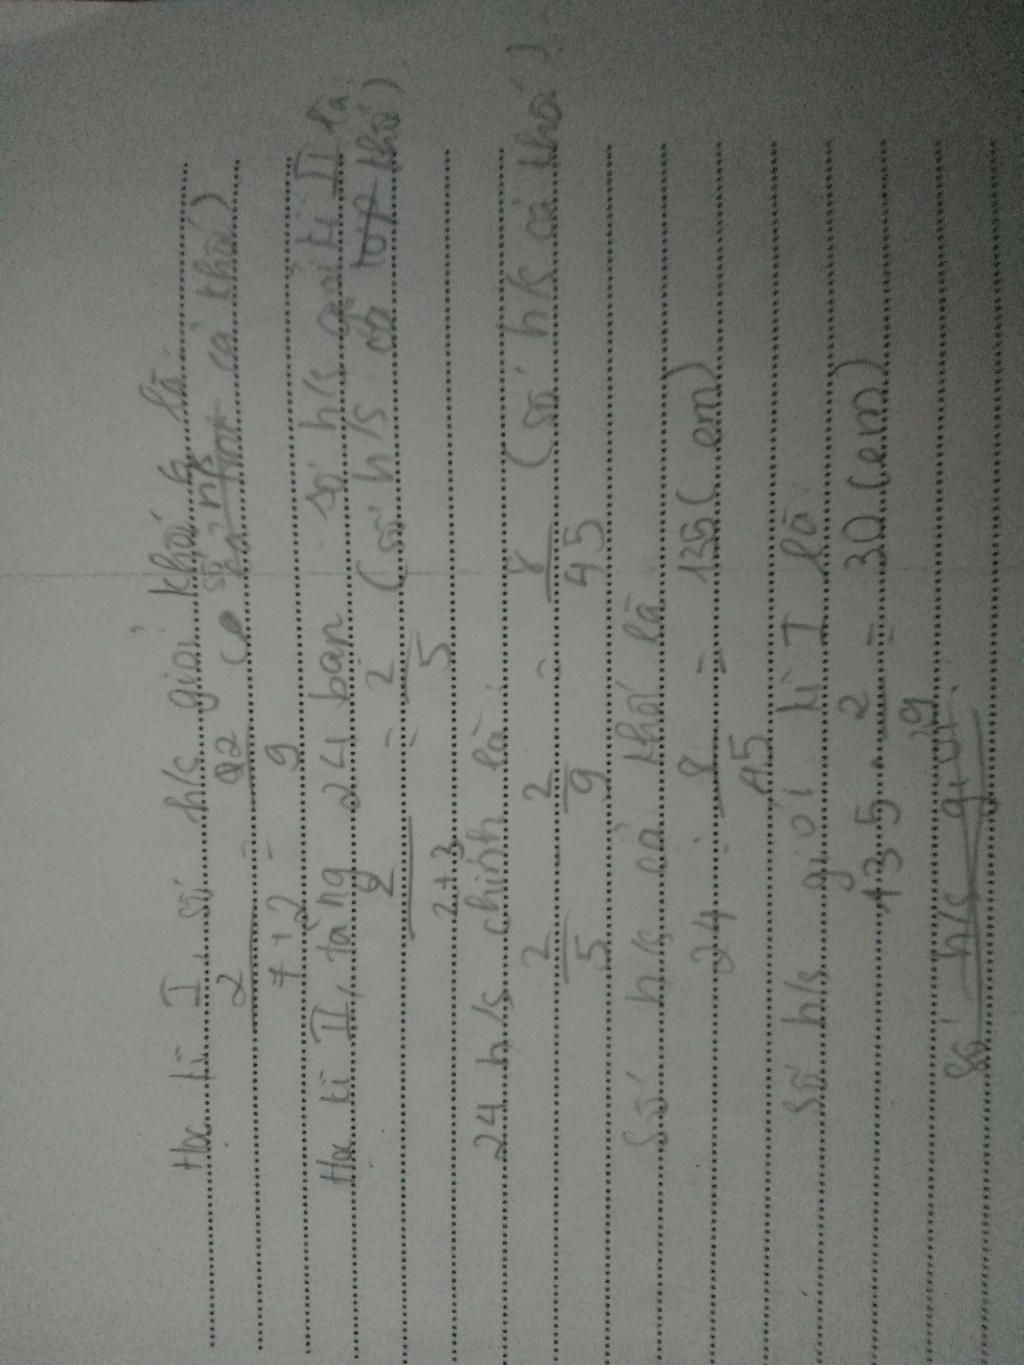 Học kì I, số h/s giỏi khối 6 là
2 / 7+2 = 2 / 9 (số h/s cả khối)
Học kì II, tăng 24 bạn số h/s giỏi kì II là
2 / 2+3 = 2 / 5 (số h/s cả khối)
24 h/s chính là:
2 / 5 - 2 / 9 = 8 / 45 (số hk cả khối)
Số h/s cả khối là
24 : 8 / 45 = 135 (em)
Số h/s giỏi kì I là
135 . 2 / 9 = 30 (em)
Số h/s giỏi